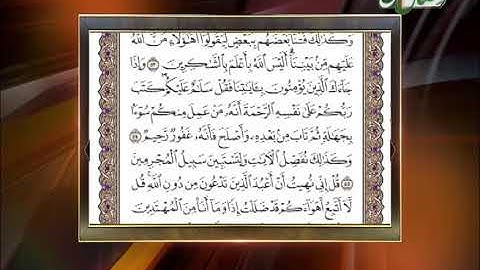 وَكَذَٰلِكَ فَتَنَّا بَعْضَهُم بِبَعْضٍ لِّيَقُولُوٓا۟ أَهَـٰٓؤُلَآءِ مَنَّ ٱللَّهُ
عَلَيْهِم مِّنۢ بَيْنِنَآ ۗ أَلَيْسَ ٱللَّهُ بِأَعْلَمَ بِٱلشَّـٰكِرِينَ ٥٣ وَإِذَا
جَآءَكَ ٱلَّذِينَ يُؤْمِنُونَ بِـَٔايَـٰتِنَا فَقُلْ سَلَـٰمٌ عَلَيْكُمْ ۖ كَتَبَ
رَبُّكُمْ عَلَىٰ نَفْسِهِ ٱلرَّحْمَةَ ۖ أَنَّهُۥ مَنْ عَمِلَ مِنكُمْ سُوٓءًۢا
بِجَهَـٰلَةٍ ثُمَّ تَابَ مِنۢ بَعْدِهِۦ وَأَصْلَحَ فَأَنَّهُۥ غَفُورٌ رَّحِيمٌ ٥٤
وَكَذَٰلِكَ نُفَصِّلُ ٱلْـَٔايَـٰتِ وَلِتَسْتَبِينَ سَبِيلُ ٱلْمُجْرِمِينَ
٥٥ قُلْ إِنِّى نُهِيتُ أَنْ أَعْبُدَ ٱلَّذِينَ تَدْعُونَ مِن دُونِ ٱللَّهِ ۚ قُل
لَّآ أَتَّبِعُ أَهْوَآءَكُمْ ۙ قَدْ ضَلَلْتُ إِذًا وَمَآ أَنَا۠ مِنَ ٱلْمُهْتَدِينَ